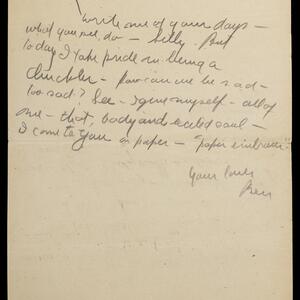 Write me of your days –
what you see, do – silly. But
today I take pride in being a
chuckler – how can we be sad –
too sad? See – I give myself – all of
me – that, body and soul –
I come to you on paper – "paper embrace"
Your lover
Ben